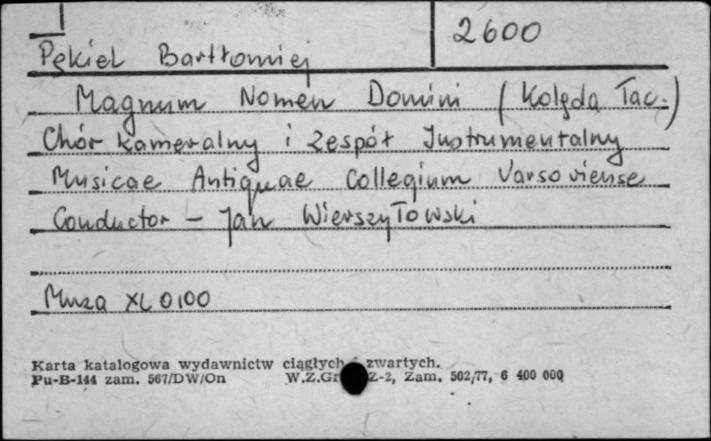 2600
Pękiel Bartłomiej
Magnum Nomen Domini (Kolęda Łac.)
Chór kameralny i Zespół Instrumentalny
Musicae Antiquae Collegium Varsoviense
Conductor – Jan Wierszyłowski
Muza XL 0100
Karta katalogowa wydawnictw ciągłych zwartych.
Pu-B-144 zam. 567/DW/On W.Z.Gr Z-2, Zam. 502/77, 6 400 000